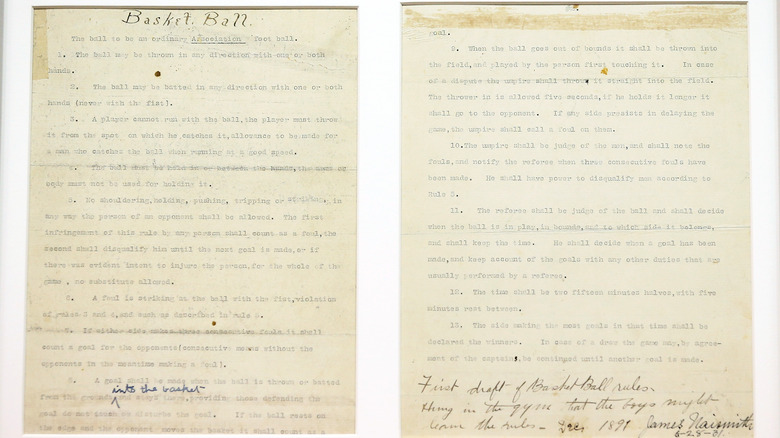 Basket Ball.
The ball to be an ordinary Association foot ball.
1. The ball may be thrown in any direction with one or both
hands.
2. The ball may be batted in any direction with one or both
hands (never with the fist).
3. A player cannot run with the ball, the player must throw
it from the spot on which he catches it, allowance to be made for
a man who catches the ball when running at a good speed.
4. The ball must be held in or between the hands, the arms or
body must not be used for holding it.
5. No shouldering, holding, pushing, tripping or striking, in
any way the person of an opponent shall be allowed. The first
infringement of this rule by any person shall count as a foul, the
second shall disqualify him until the next goal is made, or if
there was evident intent to injure the person, for the whole of the
game, no substitute allowed.
6. A foul is striking at the ball with the fist, violation
of rules 3 and 4, and such as described in rule 5.
7. If either side makes three consecutive fouls it shall
count a goal for the opponents (consecutive means without the
opponents in the meantime making a foul).
8. A goal shall be made when the ball is thrown or batted
into the basket
from the grounds and stays there, providing those defending the
goal do not touch or disturb the goal. If the ball rests on
the edge and the opponent moves the basket it shall count as a
goal.
9. When the ball goes out of bounds it shall be thrown into
the field, and played by the person first touching it. In case
of a dispute the umpire shall throw it straight into the field.
The thrower in is allowed five seconds, if he holds it longer it
shall go to the opponent. If any side presists in delaying the
game, the umpire shall call a foul on them.
10. The umpire shall be judge of the men, and shall note the
fouls, and notify the referee when three consecutive fouls have
been made. He shall have power to disqualify men according to
Rule 5.
11. The referee shall be judge of the ball and shall decide
when the ball is in play, in bounds, and to which side it belongs,
and shall keep the time. He shall decide when a goal has been
made, and keep account of the goals with any other duties that are
usually performed by a referee.
12. The time shall be two fifteen minutes halves, with five
minutes rest between.
13. The side making the most goals in that time shall be
declared the winners. In case of a draw the game may, by agree-
ment of the captains, be continued until another goal is made.
First draft of Basket Ball rules.
Hung in the gym that the boys might
learn the rules - Dec. 1891 James Naismith
6-28-31.